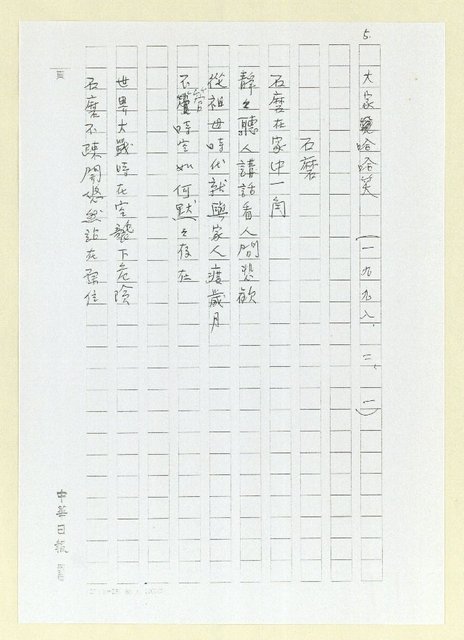 5.
大家哈哈笑 (一九九八、二、一)
石磨
石磨在家中一角
靜々聽人講話看人間悲歡
從祖母時代就與家人渡歲月
不管時空如何默々存在
世界大戰時在空襲下危險
石磨不疎開悠然站在原位
中華日報